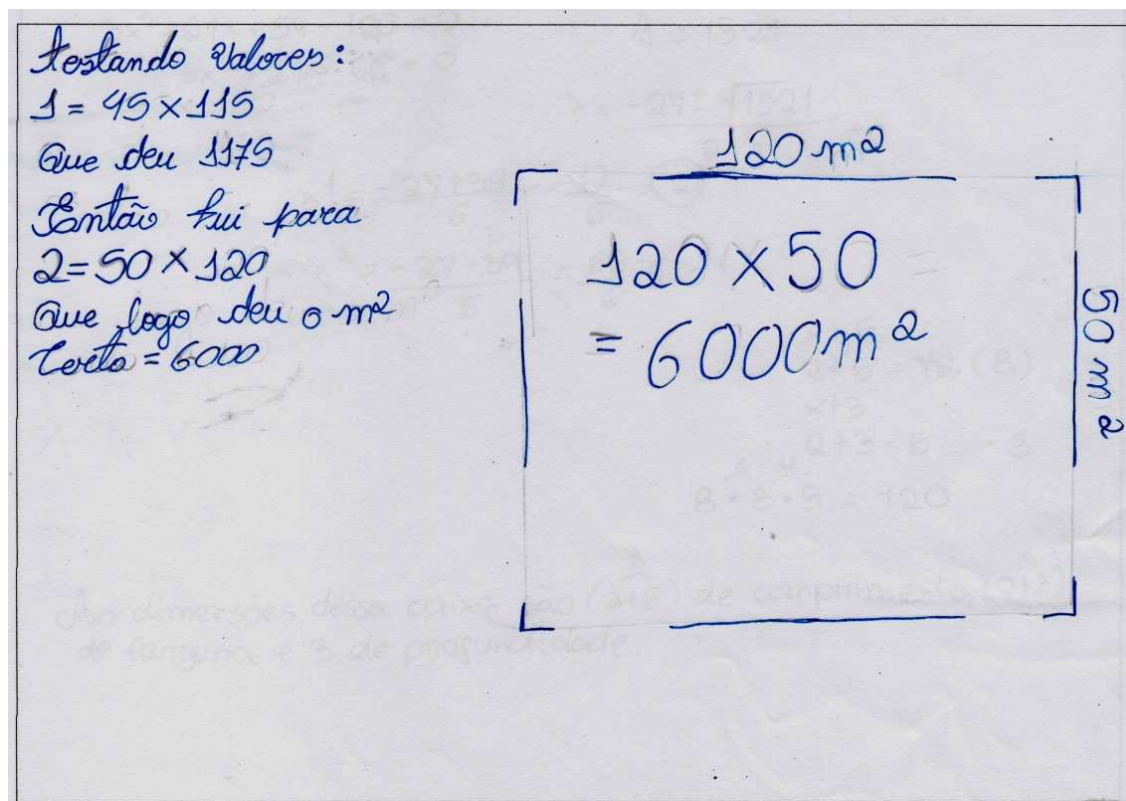 Testando Valores:
1 = 45 x 115
Que deu 1175
Então fui para
2 = 50 x 120
Que logo deu o m²
Certo = 6000
120 m²
120 x 50
= 6000m²
50 m²